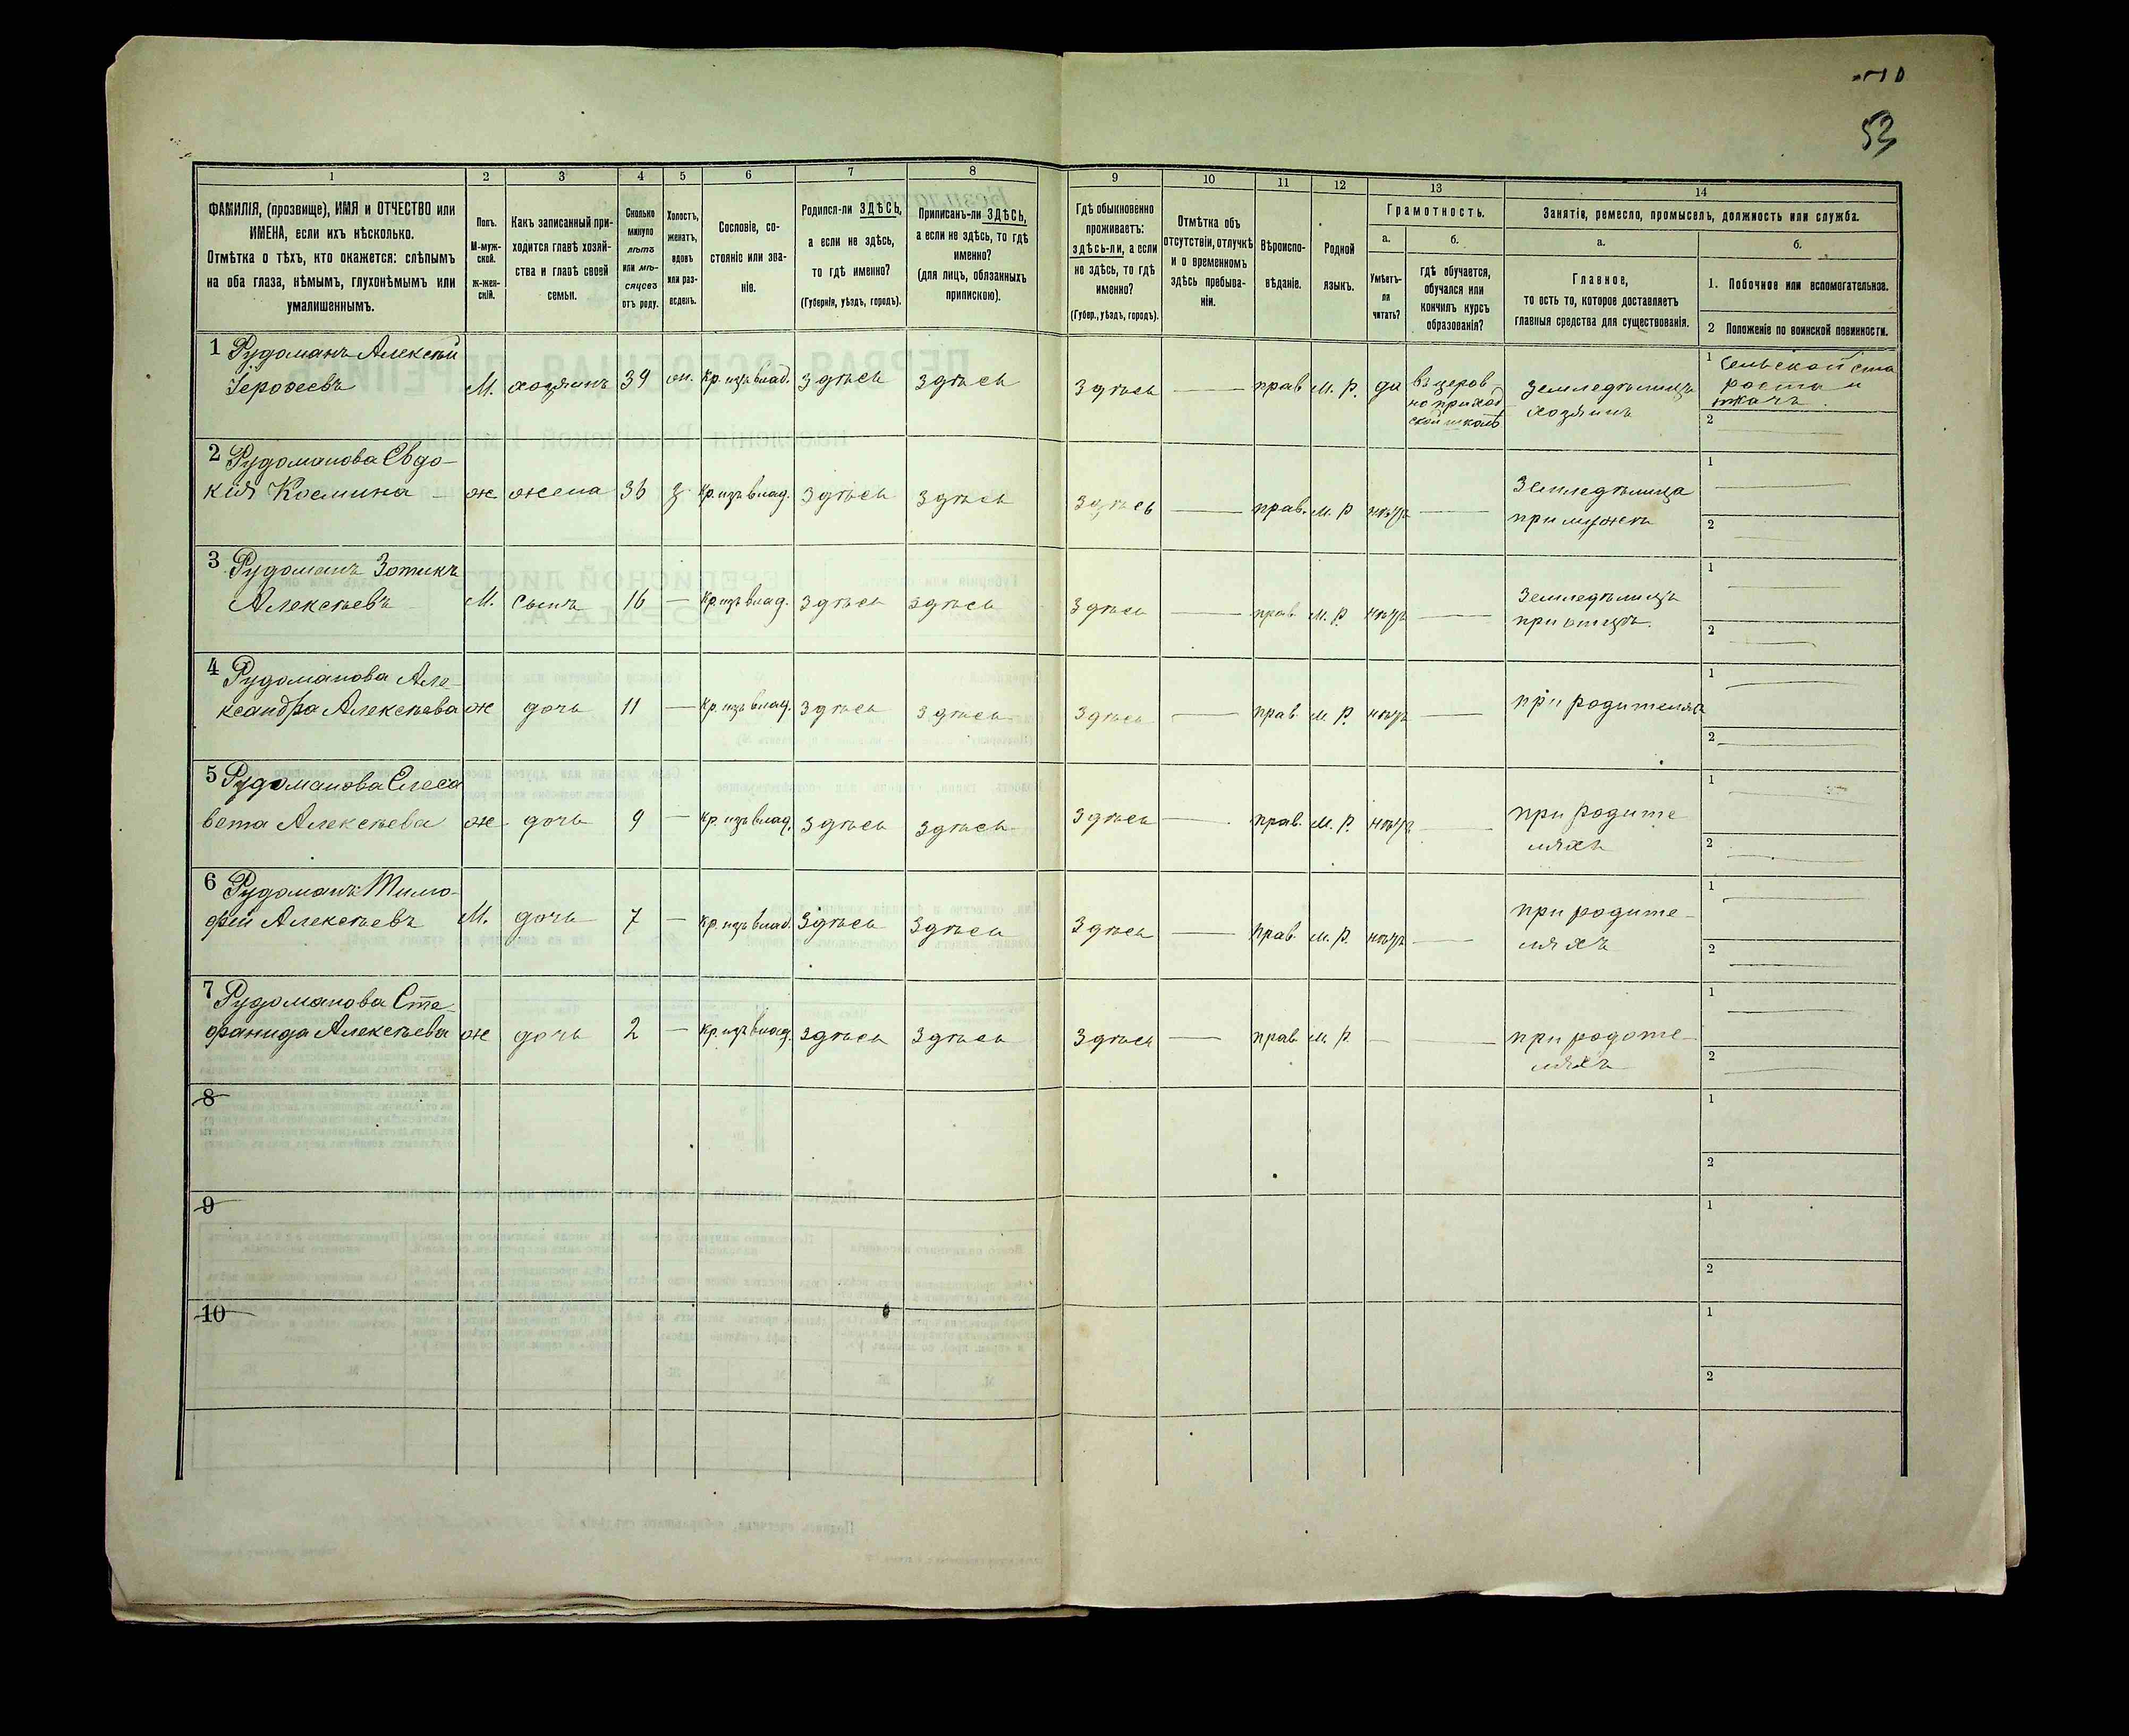 53
1
2
3
4
5
6
7
8
9
10
11
12
13
14
ФАМИЛІЯ, (прозвище), ИМЯ и ОТЧЕСТВО или
ИМЕНА, если ихъ нѣсколько.
Отмѣтка о тѣхъ, кто окажется: слѣпымъ
на оба глаза, нѣмымъ, глухонѣмымъ или
умалишеннымъ.
Полъ.
М-муж-
ской.
ж-жен-
скій.
Какъ записанный при-
ходится главѣ хозяй-
ства и главѣ своей
семьи.
Сколько
минуло
лѣтъ
или мѣ-
сяцевъ
отъ роду.
Холостъ,
женатъ,
вдовъ
или раз-
веденъ.
Сословіе, со-
стояніе или зва-
ніе.
Родился-ли ЗДѢСЬ,
а если не здѣсь,
то гдѣ именно?
(Губернія, уѣздъ, городъ).
Приписанъ-ли ЗДѢСЬ,
а если не здѣсь, то гдѣ
именно?
(для лицъ, обязанныхъ
припискою).
Гдѣ обыкновенно
проживаетъ:
здѣсь-ли, а если
не здѣсь, то гдѣ
именно?
(Губер., уѣздъ, городъ).
Отмѣтка объ
отсутствіи, отлучкѣ
и о временномъ
здѣсь пребыва-
ніи.
Вѣроиспо-
вѣданіе.
Родной
языкъ.
Грамотность.
а.
Умѣетъ-
ли
читать?
б.
гдѣ обучается,
обучался или
кончилъ курсъ
образованія?
Занятіе, ремесло, промыселъ, должность или служба.
а.
Главное,
то есть то, которое доставляетъ
главныя средства для существованія.
б.
1. Побочное или вспомогательное.
2 Положеніе по воинской повинности.
1 Рудоманъ Алексѣй
Іерофеевъ М. хозяинъ 39 ж. кр. изъ влад. здѣсь здѣсь здѣсь — прав. м. р. да
въ церов
но приход
ской школѣ
земледѣлецъ
хозяинъ
1 Сельской ста
роста и
ткачъ.
2
2 Рудоманова Евдо-
кія Космина ж жена 36 з. кр. изъ влад. здѣсь здѣсь здѣсь — прав. м. р нѣтъ —
Земледѣлица
при мужѣ
1
2
3 Рудоманъ Зотикъ
Алексѣевъ М. сынъ 16 — кр. изъ влад. здѣсь здѣсь здѣсь — прав м. р. нѣтъ —
Земледѣлецъ
при отцѣ.
1
2
4 Рудоманова Але-
ксандра Алексѣева ж дочь 11 — кр. изъ влад. здѣсь здѣсь здѣсь — прав. м р. нѣтъ — при родителяхъ
1
2
5 Рудоманова Елеса
вета Алексѣева ж дочь 9 — кр. изъ влад. здѣсь здѣсь здѣсь — прав. м. р. нѣтъ —
при родите
ляхъ
1
2
6 Рудоманъ Тимо-
фей Алексѣевъ М. дочь 7 — кр. изъ влад. здѣсь здѣсь здѣсь — прав. м. р. нѣтъ —
при родите-
ляхъ
1
2
7 Рудоманова Сте-
фанида Алексѣева ж дочь 2 — кр. изъ влад. здѣсь здѣсь здѣсь — прав м. р — —
при родоте-
ляхъ
1
2
8
1
2
9
1
2
10
1
2